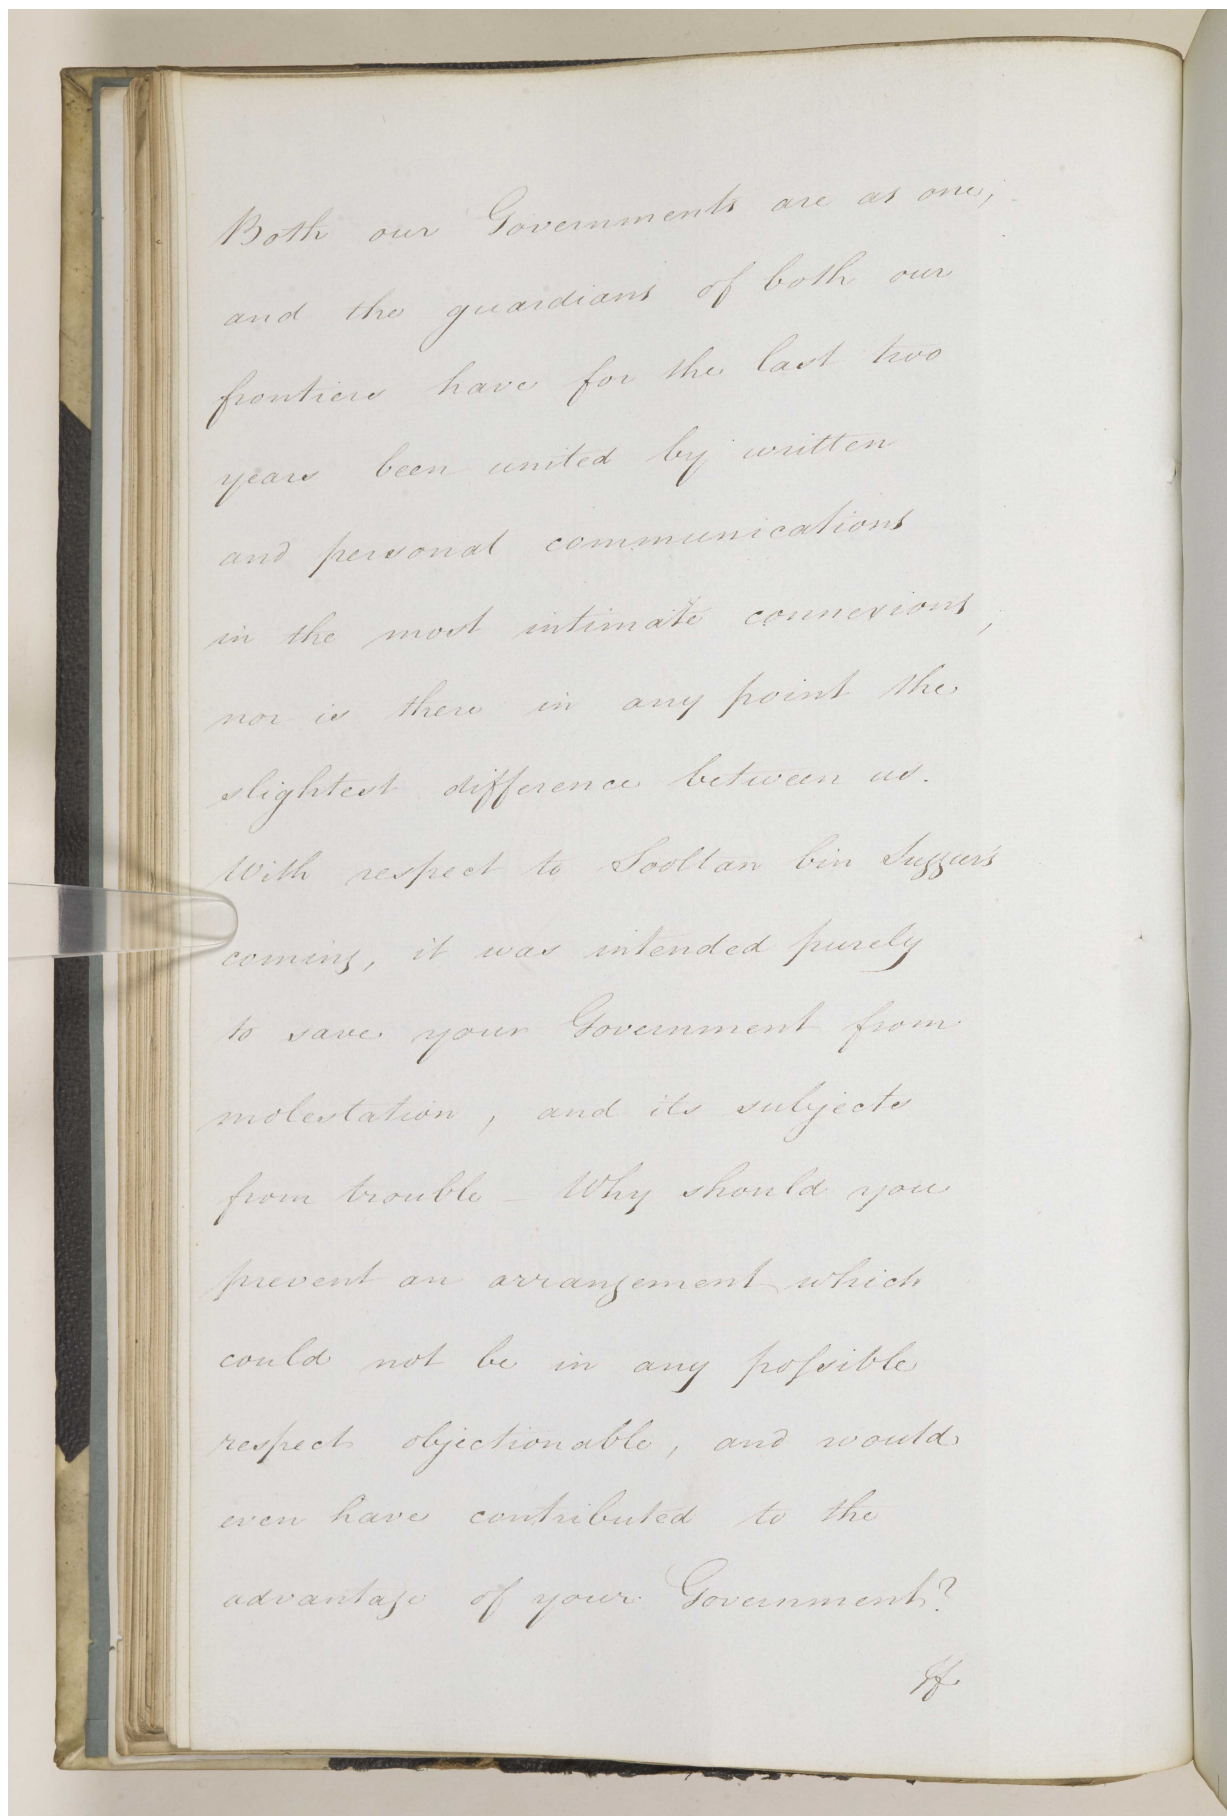 Both our Governments are as one,
and the guardians of both our
frontiers have for the last two
years been united by written
and personal communications
in the most intimate connexions,
nor is there in any point the
slightest difference between us.
With respect to Sooltan bin Suggur's
coming, it was intended purely
to save your Government from
molestation, and its subjects
from trouble – Why should you
prevent an arrangement which
could not be in any poſsible
respect objectionable, and would
even have contributed to the
advantage of your Government?
If